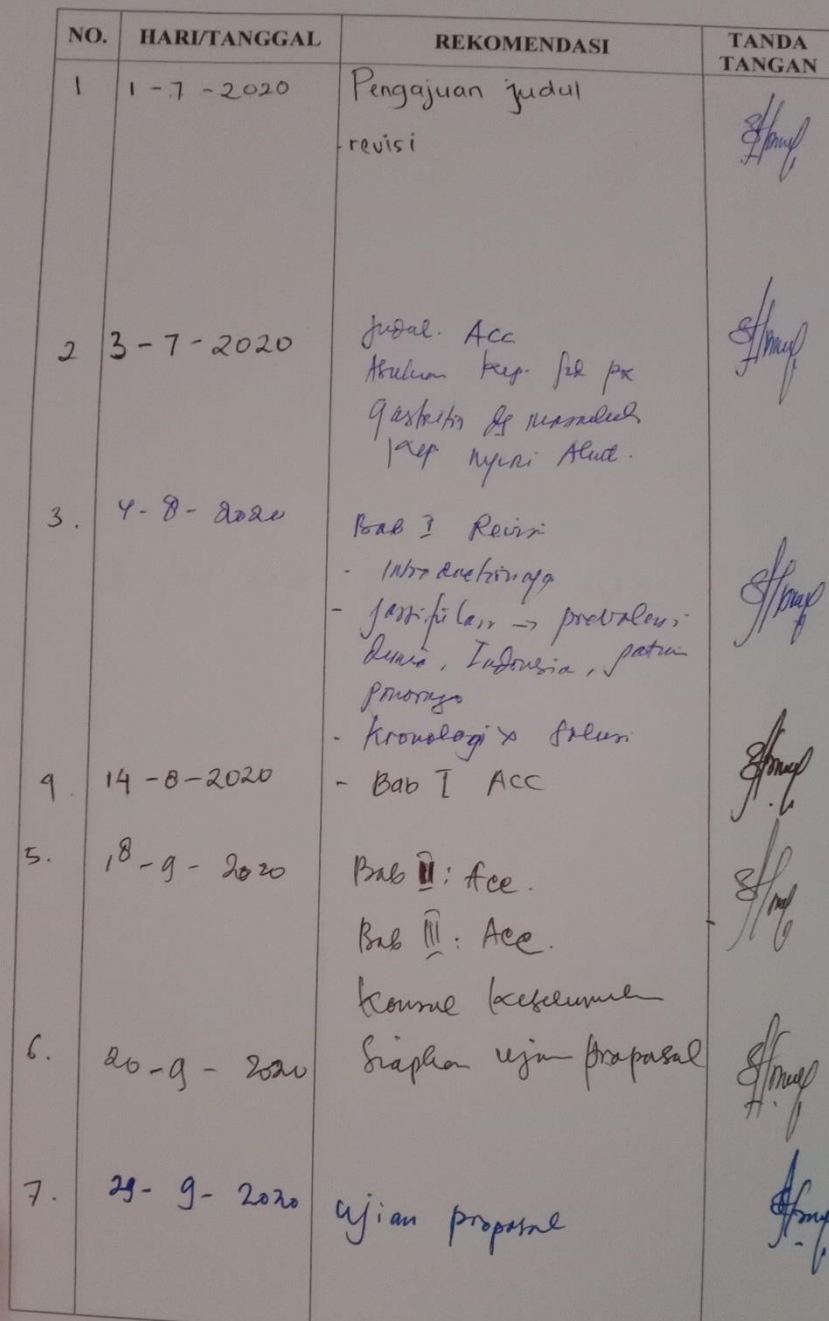 NO. HARI/TANGGAL REKOMENDASI TANDA TANGAN
1 1-7-2020 Pengajuan judul
- revisi
2 3-7-2020 Judul. Acc
Asuhan kep. px
gastritis dg masalah
kep nyeri Akut.
3. 4-8-2020 Bab I Revisi
- Introductionnya
- Justifikasi → prevalensi
dunia, Indonesia,
ponorogo
- Kronologi x Solusi
4 14-8-2020 - Bab I ACC
5. 18-9-2020 Bab II: Acc.
Bab III: Acc.
Konsul keseluruhan
6. 20-9-2020 Siapkan ujian proposal
7. 29-9-2020 ujian proposal